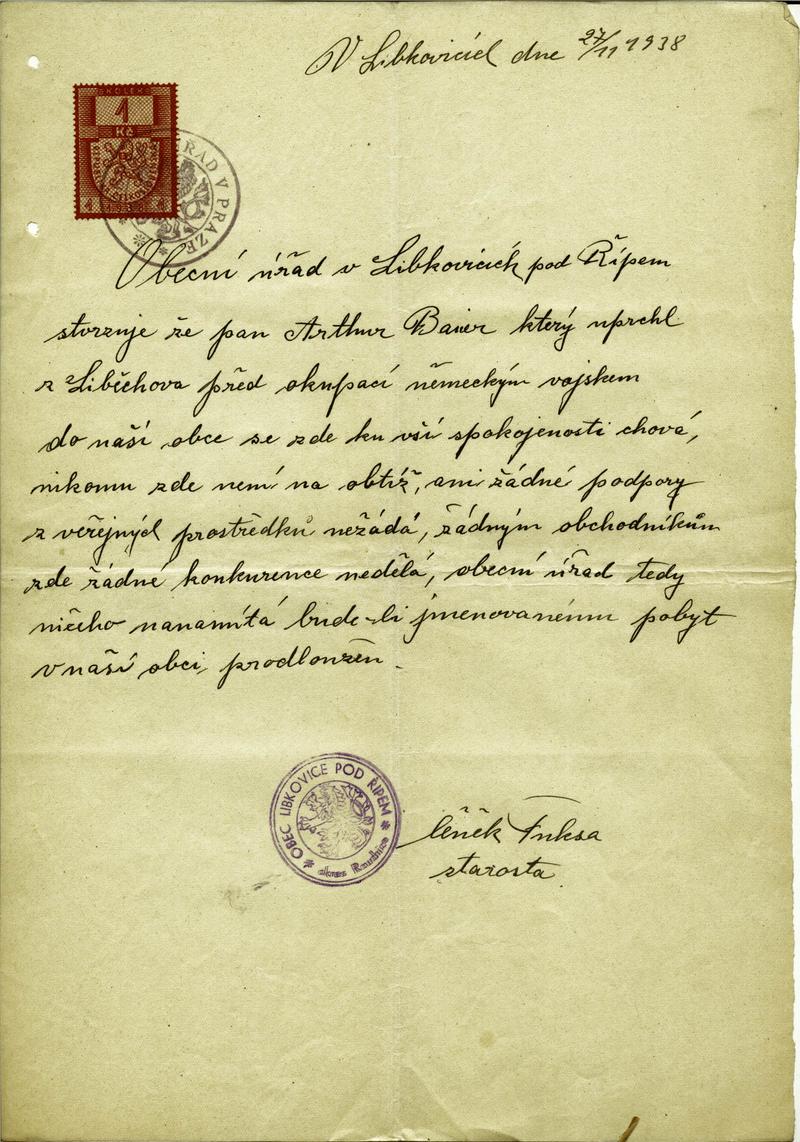 V Libkovicích dne 27/11 1938
KOLEK
1
Kč
ÚŘAD V PRAZE
Obecní úřad v Libkovicích pod Řípem
stvrzuje že pan Arthur Baier který uprchl
z Liběchova před okupací německým vojskem
do naší obce se zde ku vší spokojenosti chová,
nikomu zde není na obtíž, ani žádné podpory
z veřejných prostředků nežádá, žádným obchodníkům
zde žádné konkurence nedělá, obecní úřad tedy
ničeho nanamítá bude-li jmenovanému pobyt
v naší obci prodloužen.
OBEC LIBKOVICE POD ŘÍPEM
okres Roudnice
Fuksa
starosta